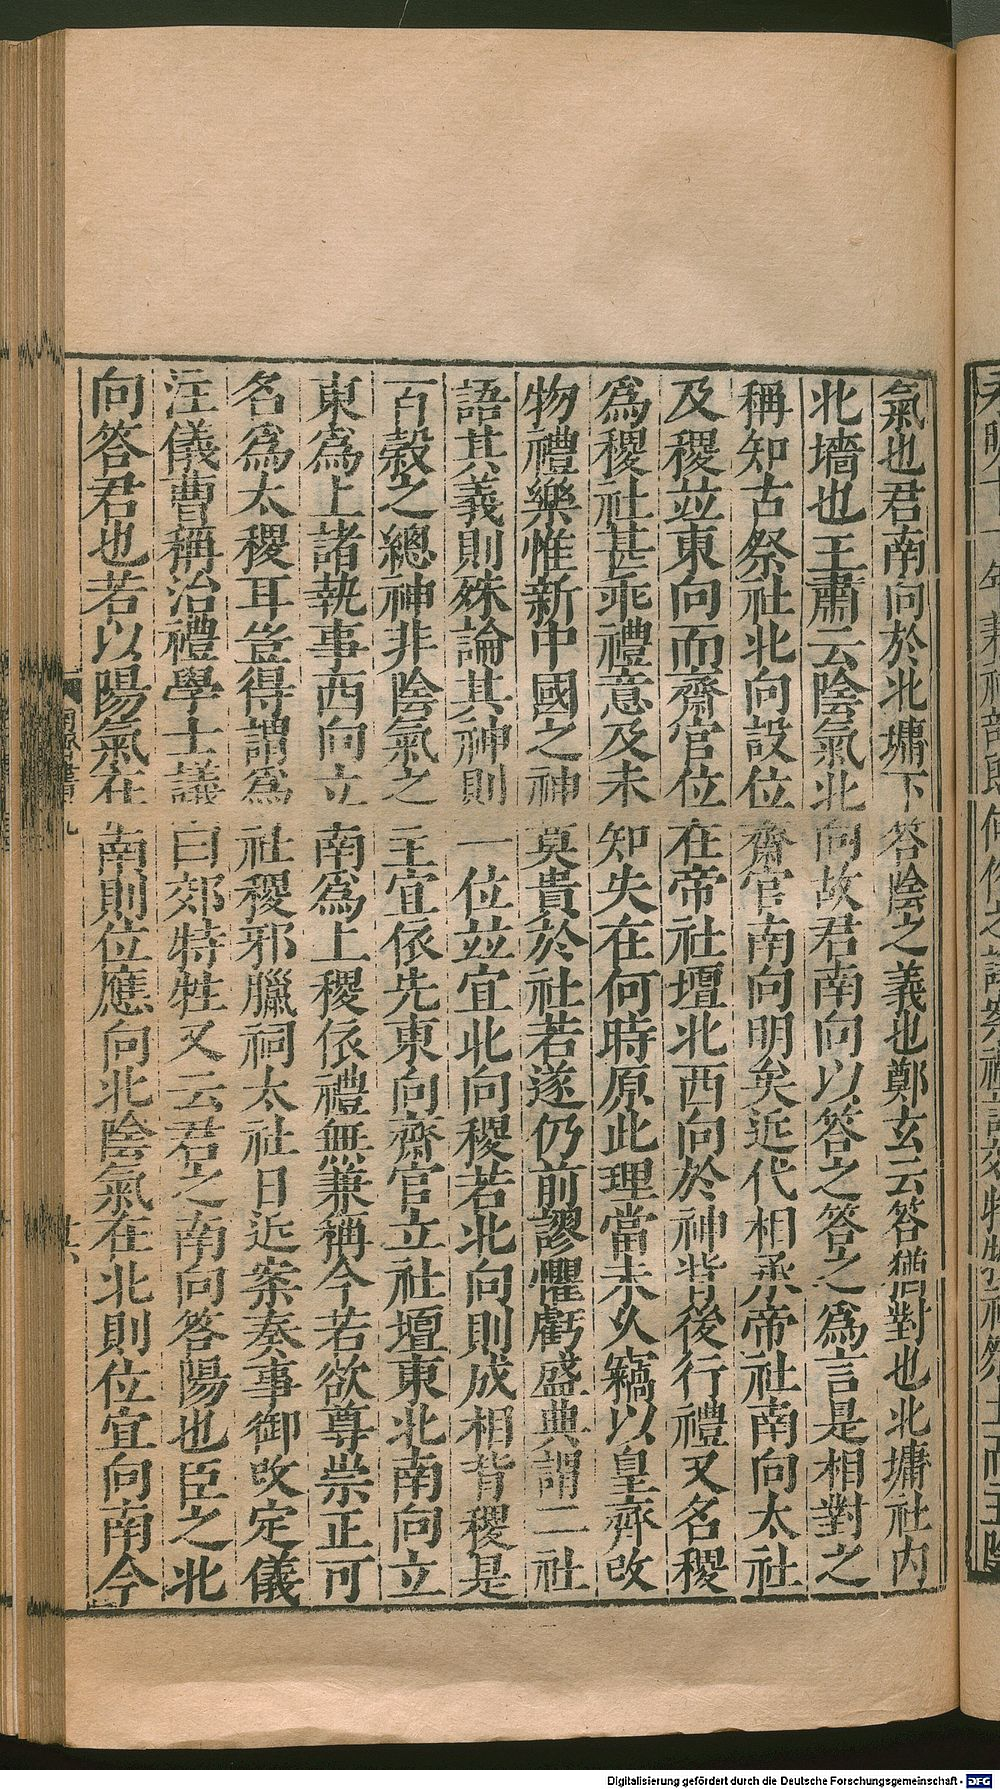 氣也君南向於北墉下答陰之義也鄭玄云答猶對也北墉社內
北墻也王肅云陰氣北向故君南向以答之答之為言是相對之
稱知古祭社北向設位齋官南向明矣近代相承帝社南向太社
及稷並東向而齋官位在帝社壇北西向於神背後行禮又名稷
為稷社甚乖禮意及未知失在何時原此理當未久竊以皇齊改
物禮樂惟新中國之神莫貴於社若遂仍前謬懼虧盛典謂二社
語其義則殊論其神則一位並宜北向稷若北向則成相背稷是
百穀之總神非陰氣之主宜依先東向齋官立社壇東北南向立
東為上諸執事西向立南為上稷依禮無兼稱今若欲尊崇正可
名為太稷耳豈得謂為社稷邪臘祠太社日近案奏事御改定儀
注儀曹稱治禮學士議曰郊特牲又云君之南向答陽也臣之北
向答君也若以陽氣在南則位應向北陰氣在北則位宜向南今
Digitalisierung gefördert durch die Deutsche Forschungsgemeinschaft - DFG